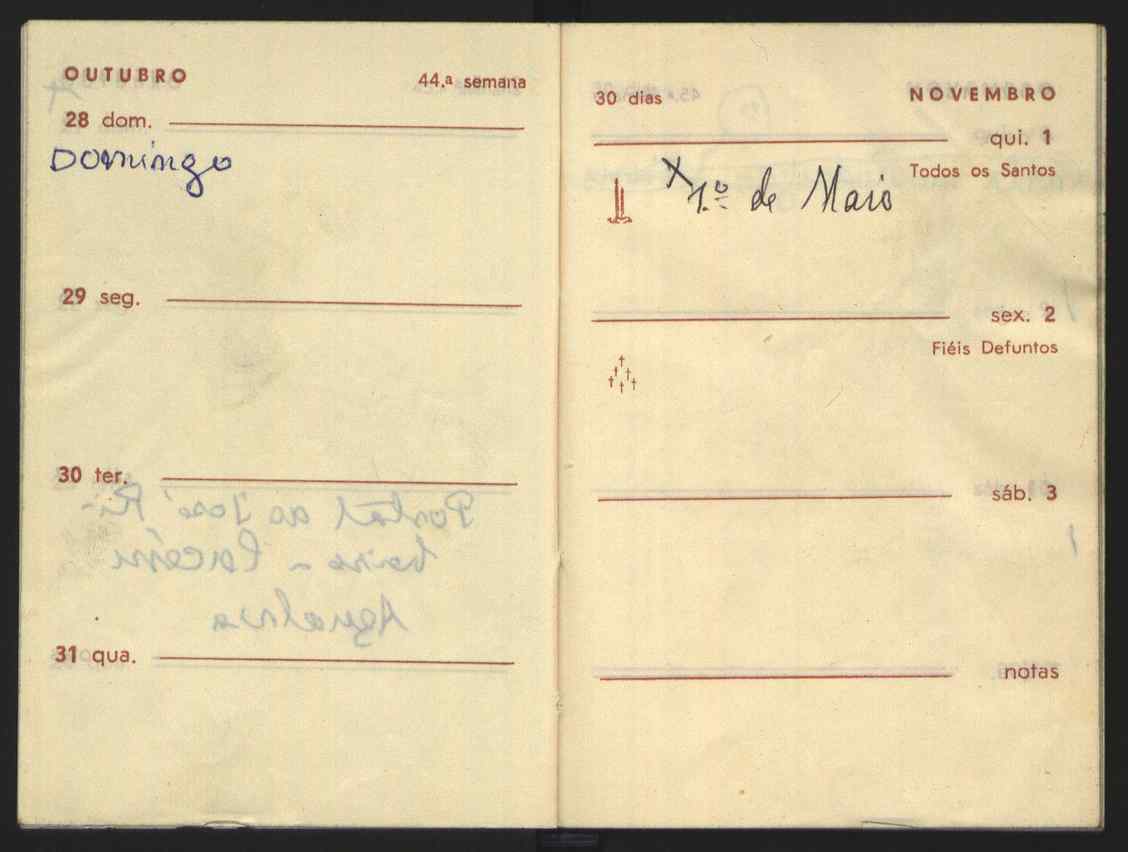 OUTUBRO 44.ª semana
28 dom.
Domingo
29 seg.
30 ter.
31 qua.
30 dias NOVEMBRO
qui. 1
Todos os Santos
X 1.º de Maio
sex. 2
Fiéis Defuntos
sáb. 3
notas